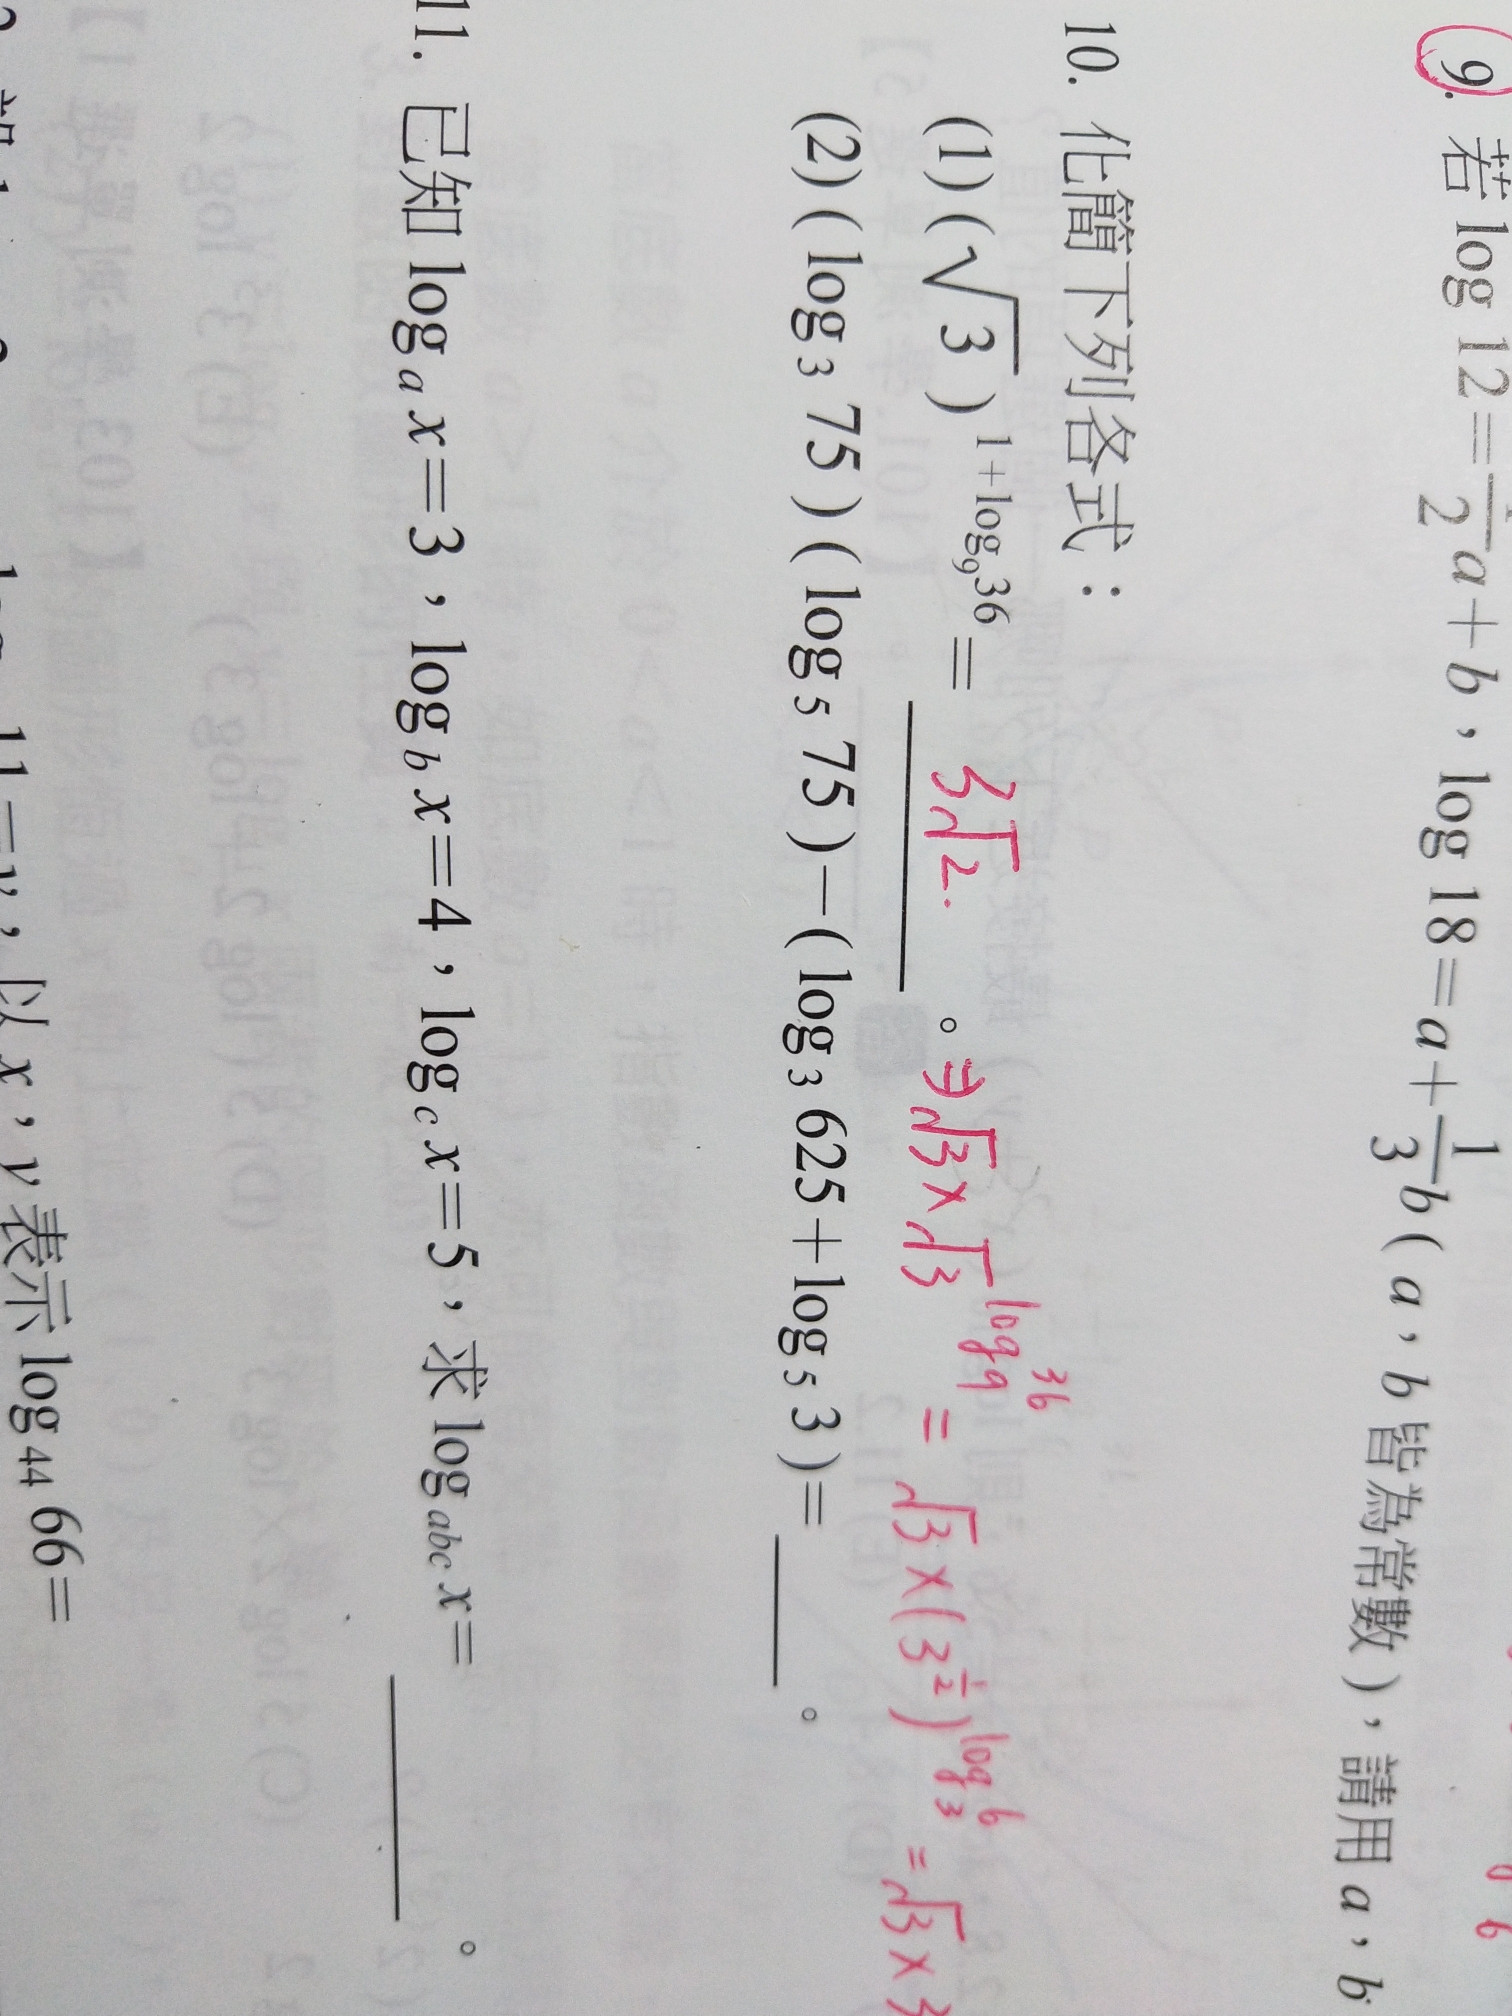 9. 若 log 12 = —2 a + b，log 18 = a + 1/3 b ( a，b 皆為常數 )，請用 a，b
10. 化簡下列各式：
(1) (√3)^{1+log₉36} = 3√2. 。⇒ √3 × √3^{log₉36} = √3 × (3^{1/2})^{log₃6} = √3 × 3
(2) ( log₃ 75 ) ( log₅ 75 ) − ( log₃ 625 + log₅ 3 ) = ＿＿ 。
11. 已知 logₐ x = 3，log_b x = 4，log_c x = 5，求 log_{abc} x = ＿＿ 。
11 = y，以 x，y 表示 log₄₄ 66 =